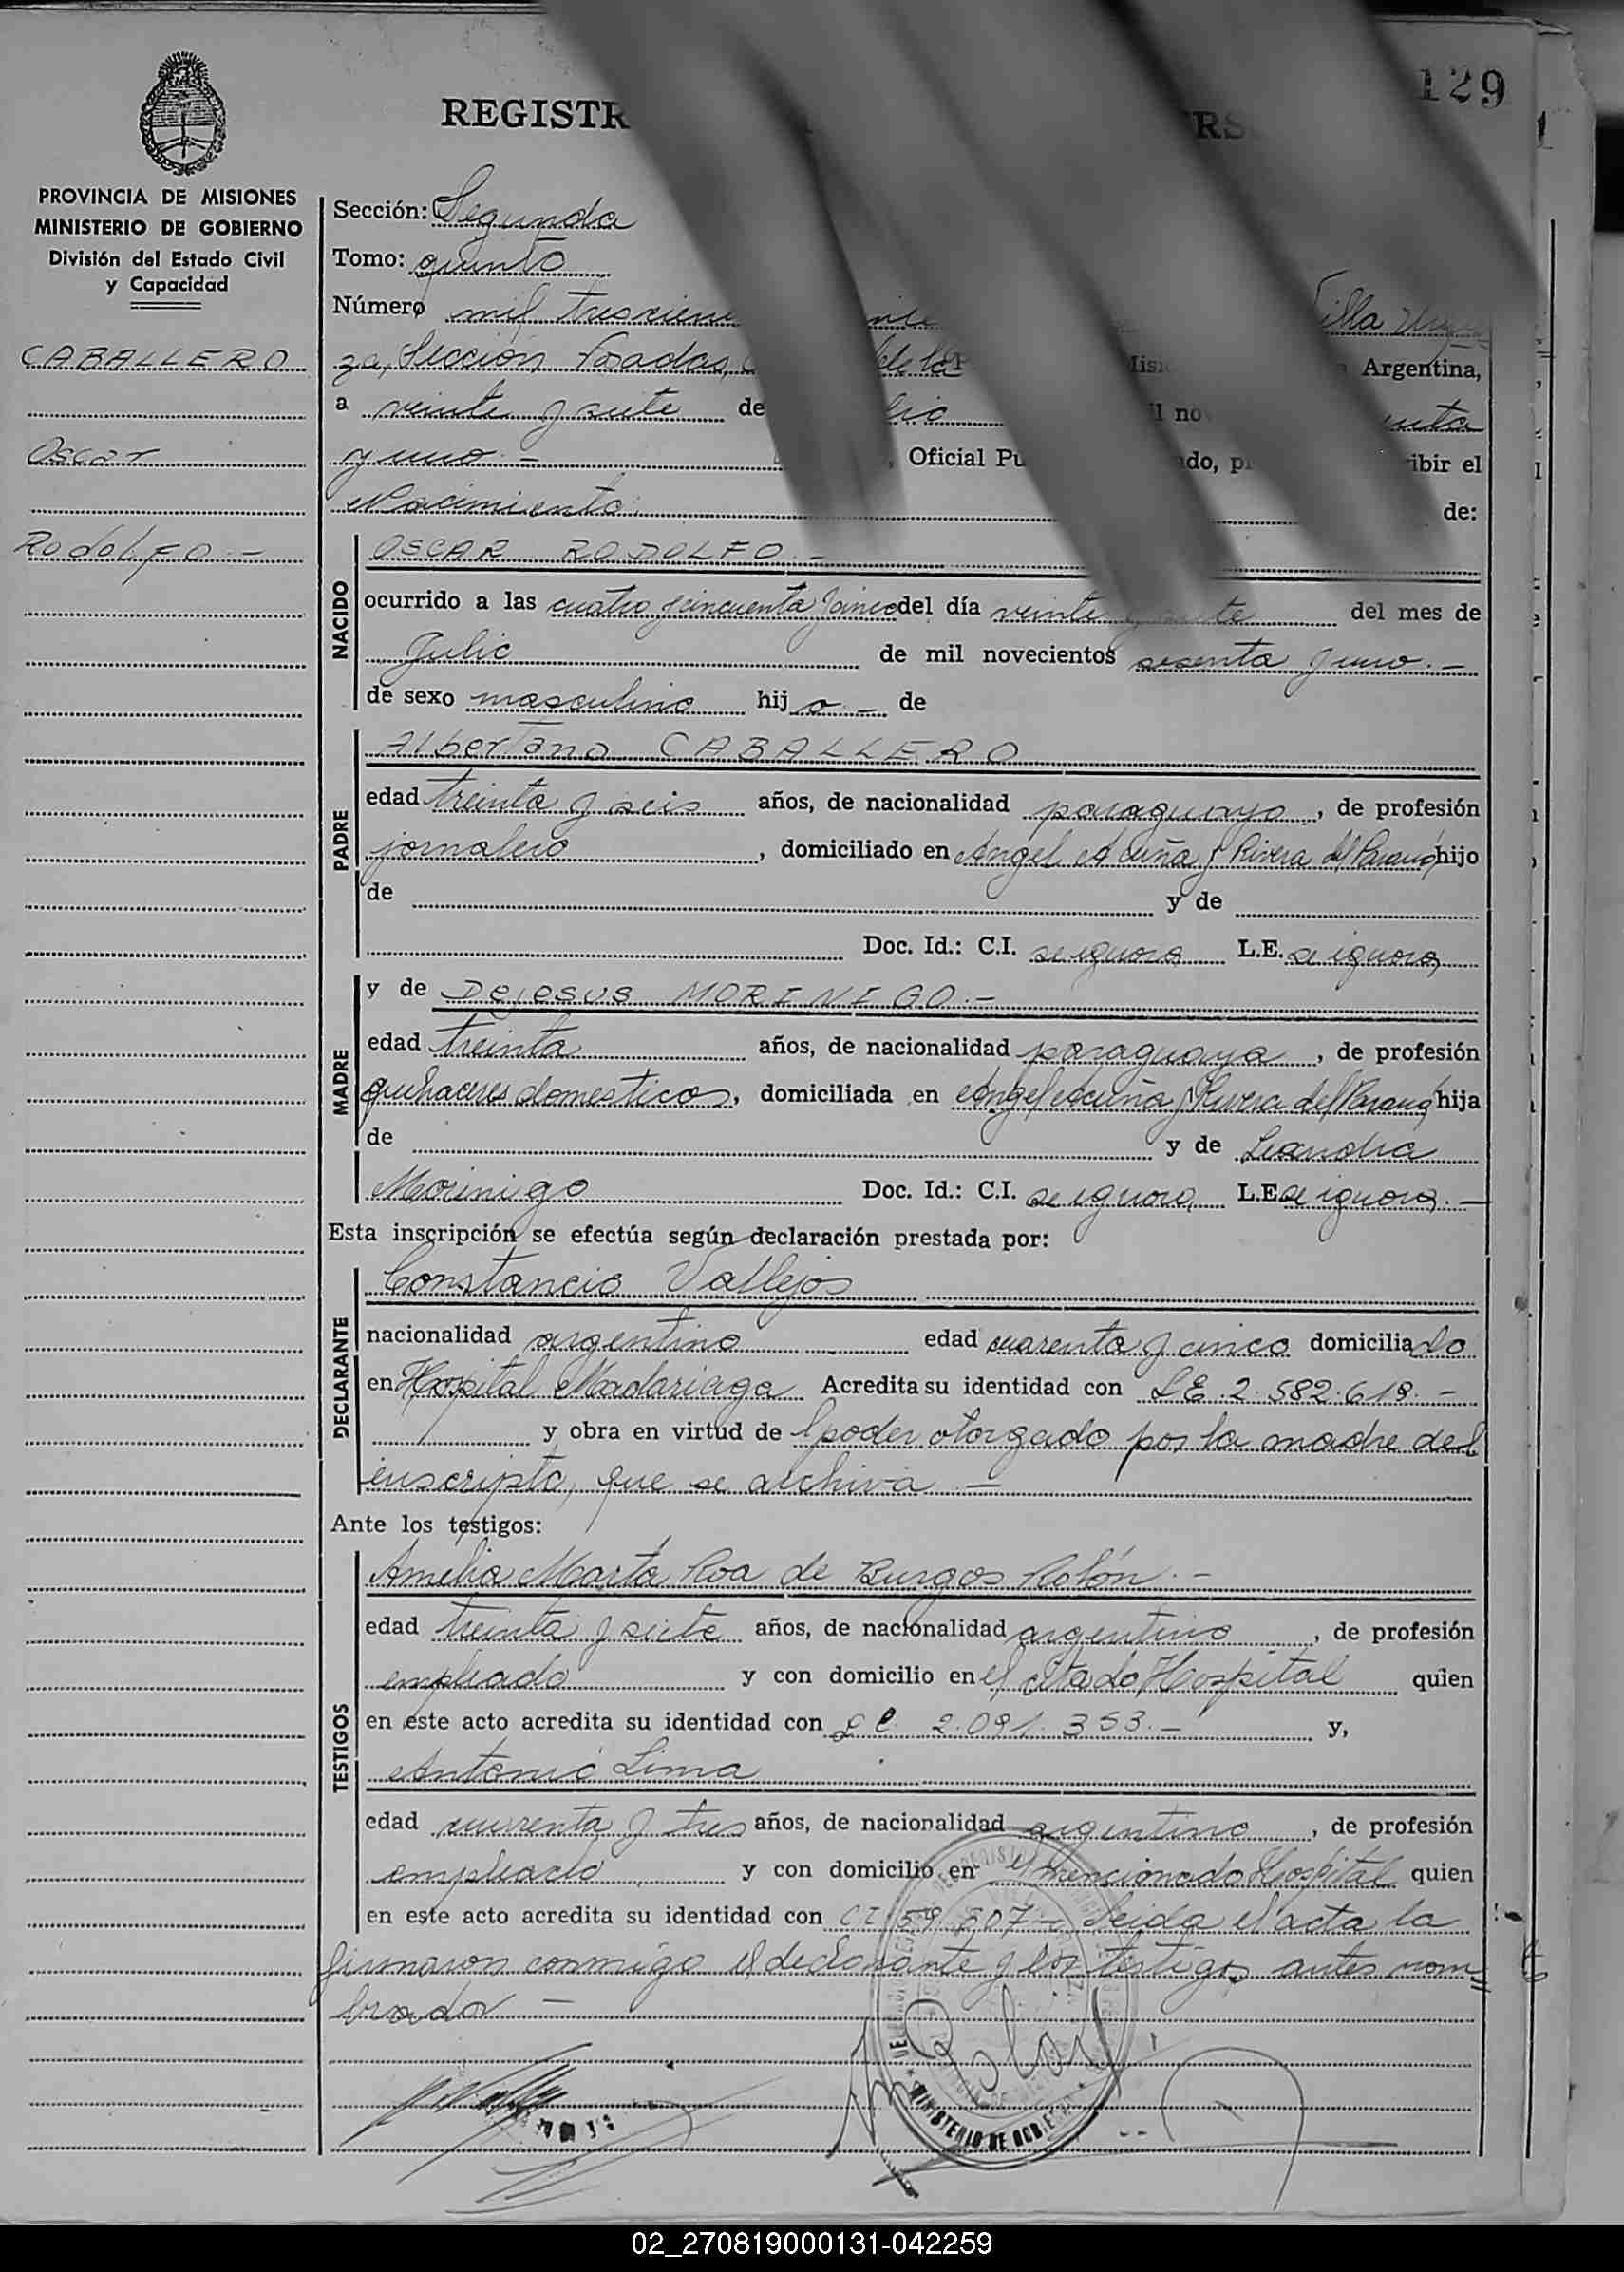 129
REGISTR
PROVINCIA DE MISIONES
MINISTERIO DE GOBIERNO
División del Estado Civil
y Capacidad
CABALLERO
Oscar
Rodolfo.-
Sección: Segunda
Tomo: quinto
Número mil Villa Urqui
za, Sección Posadas, de la Argentina,
a veinte y siete de
y uno.- Oficial ibir el
Nacimiento de:
NACIDO
OSCAR RODOLFO.-
ocurrido a las cuatro y cincuenta y cinco del día veinte y siete del mes de
Julio de mil novecientos sesenta y uno.-
de sexo masculino hijo - de
PADRE
Albertano CABALLERO
edad treinta y seis años, de nacionalidad paraguayo, de profesión
jornalero, domiciliado en Angel Acuña y Rivera del Paraná hijo
de y de
Doc. Id.: C.I. se ignora L.E. se ignora
MADRE
y de Dejesus MORINIGO.-
edad treinta años, de nacionalidad paraguaya, de profesión
quehaceres domesticos, domiciliada en Angel Acuña y Rivera del Paraná hija
de y de Leandra
Morinigo Doc. Id.: C.I. se ignora L.E. se ignora.-
Esta inscripción se efectúa según declaración prestada por:
DECLARANTE
Constancio Vallejos
nacionalidad argentino edad cuarenta y cinco domiciliado
en Hospital Madariaga Acredita su identidad con LE.2.582.619.-
y obra en virtud de poder otorgado por la madre del
inscripto, que se archiva -
Ante los testigos:
TESTIGOS
Amelia Marta Roa de Burgos Rolón.-
edad treinta y siete años, de nacionalidad argentino, de profesión
empleado y con domicilio en el citado Hospital quien
en este acto acredita su identidad con 2.091.353.- y,
Antonio Lima
edad cuarenta y tres años, de nacionalidad argentino, de profesión
empleado y con domicilio en el mencionado Hospital quien
en este acto acredita su identidad con CI Leida el acta la
firmaron conmigo el declarante y los testigos antes nom=
brados -
MINISTERIO DE GOBIERNO
02_270819000131-042259